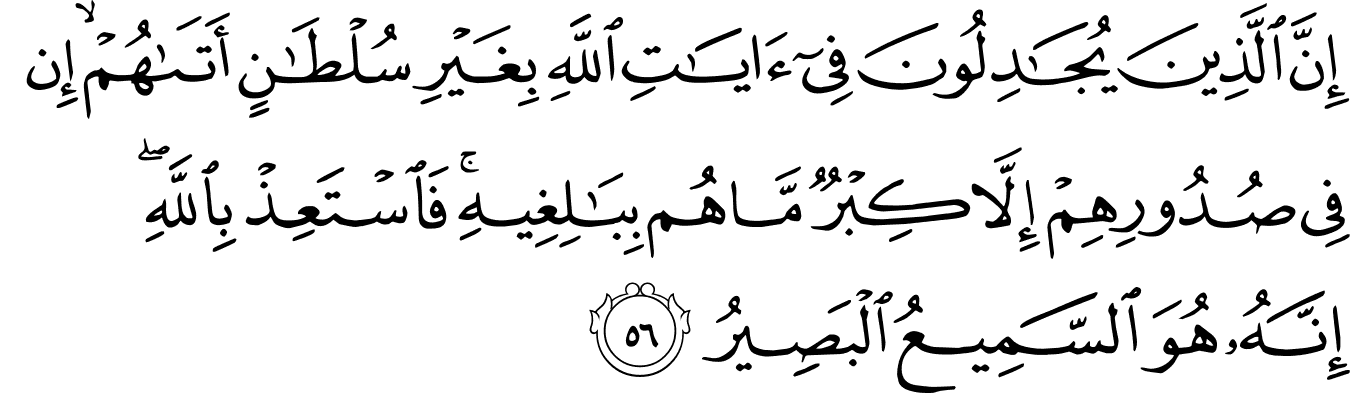 إِنَّ ٱلَّذِينَ يُجَـٰدِلُونَ فِىٓ ءَايَـٰتِ ٱللَّهِ بِغَيْرِ سُلْطَـٰنٍ أَتَىٰهُمْ ۙ إِن
فِى صُدُورِهِمْ إِلَّا كِبْرٌ مَّا هُم بِبَـٰلِغِيهِ ۚ فَٱسْتَعِذْ بِٱللَّهِ ۖ
إِنَّهُۥ هُوَ ٱلسَّمِيعُ ٱلْبَصِيرُ ٥٦